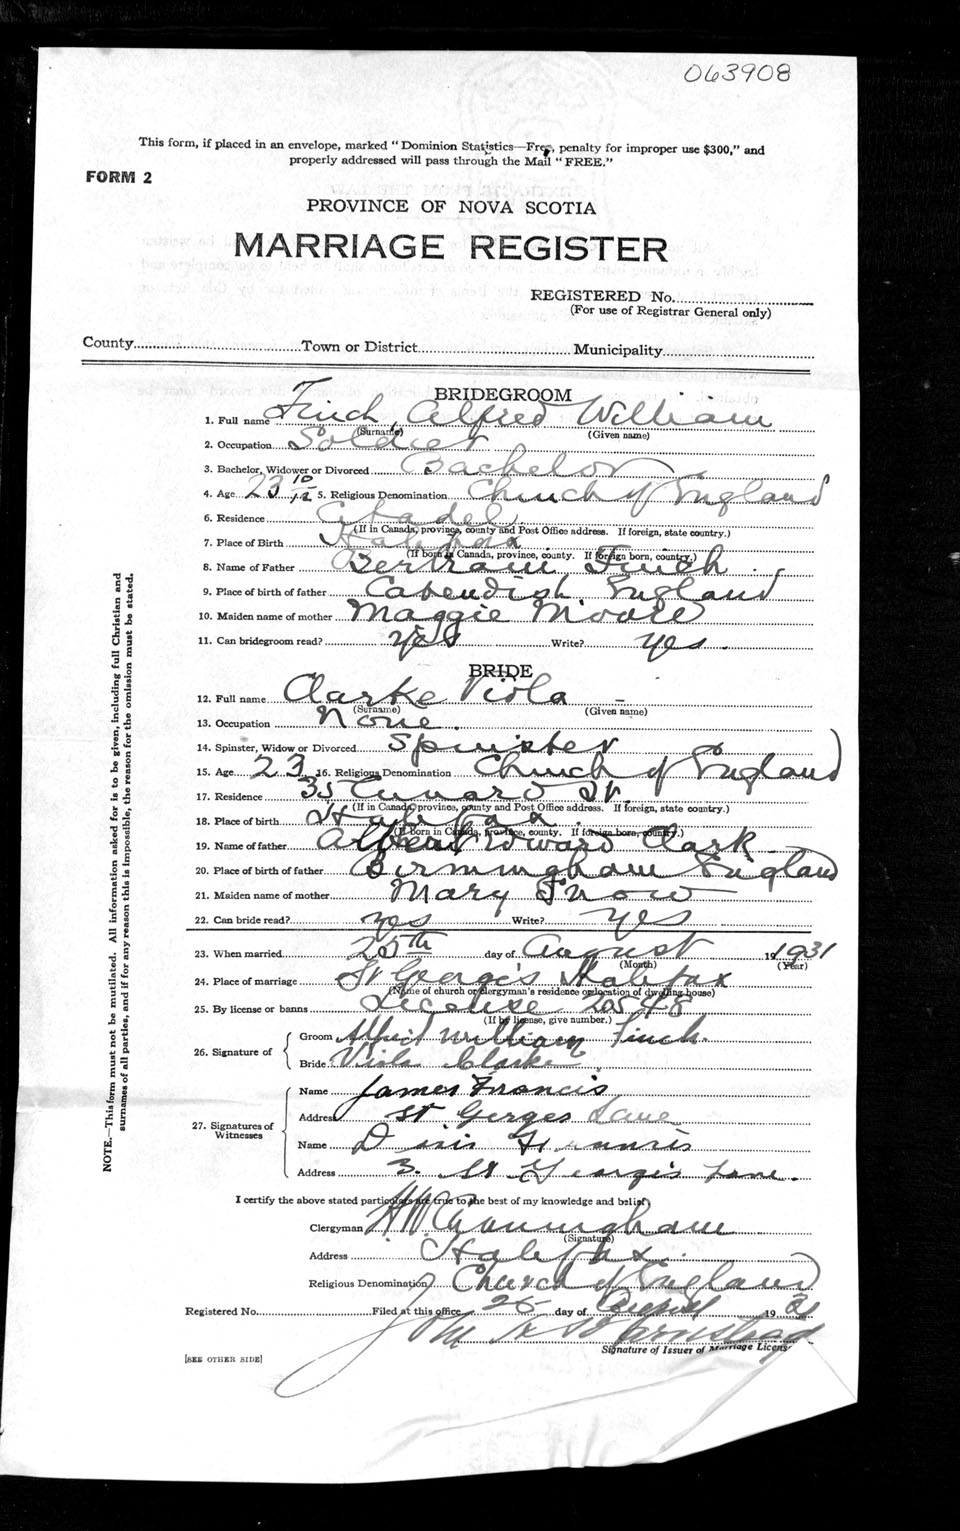 063908
This form, if placed in an envelope, marked "Dominion Statistics—Free, penalty for improper use $300," and
properly addressed will pass through the Mail "FREE."
FORM 2
PROVINCE OF NOVA SCOTIA
MARRIAGE REGISTER
REGISTERED No.
(For use of Registrar General only)
County Town or District Municipality
BRIDEGROOM
1. Full name Finch, Alfred William
(Surname) (Given name)
2. Occupation Soldier
3. Bachelor, Widower or Divorced Bachelor
4. Age 23 10/12 5. Religious Denomination Church of England
6. Residence Citadel
(If in Canada, province, county and Post Office address. If foreign, state country.)
7. Place of Birth Halifax
(If born in Canada, province, county. If foreign born, country.)
8. Name of Father Bertram Finch
9. Place of birth of father Cavendish England
10. Maiden name of mother Maggie Moore
11. Can bridegroom read? yes Write? yes
BRIDE
12. Full name Clarke Viola
(Surname) (Given name)
13. Occupation None
14. Spinster, Widow or Divorced Spinster
15. Age 23 16. Religious Denomination Church of England
17. Residence 35 Cunard St.
(If in Canada, province, county and Post Office address. If foreign, state country.)
18. Place of birth Halifax
(If Born in Canada, province, county. If foreign born, country.)
19. Name of father Albert Edward Clark
20. Place of birth of father Birmingham England
21. Maiden name of mother Mary Snow
22. Can bride read? yes Write? yes
23. When married 25th day of August 19 1931
(Month) (Year)
24. Place of marriage St Georges Halifax
(Name of church or clergyman's residence or location of dwelling house)
25. By license or banns License 20548
(If by license, give number.)
26. Signature of Groom Alfred William Finch.
Bride Viola Clarke
27. Signatures of Witnesses
Name James Francis
Address St Gerges Lane
Name Francis
Address 3. St Georges Lane.
I certify the above stated particulars are true to the best of my knowledge and belief,
Clergyman H W Cunningham
(Signature)
Address Halifax
Religious Denomination Church of England
Registered No. Filed at this office 25 day of August 19 31
Signature of Issuer of Marriage License
[SEE OTHER SIDE]
NOTE.—This form must not be mutilated. All information asked for is to be given, including full Christian and
surnames of all parties, and if for any reason this is impossible, the reason for the omission must be stated.